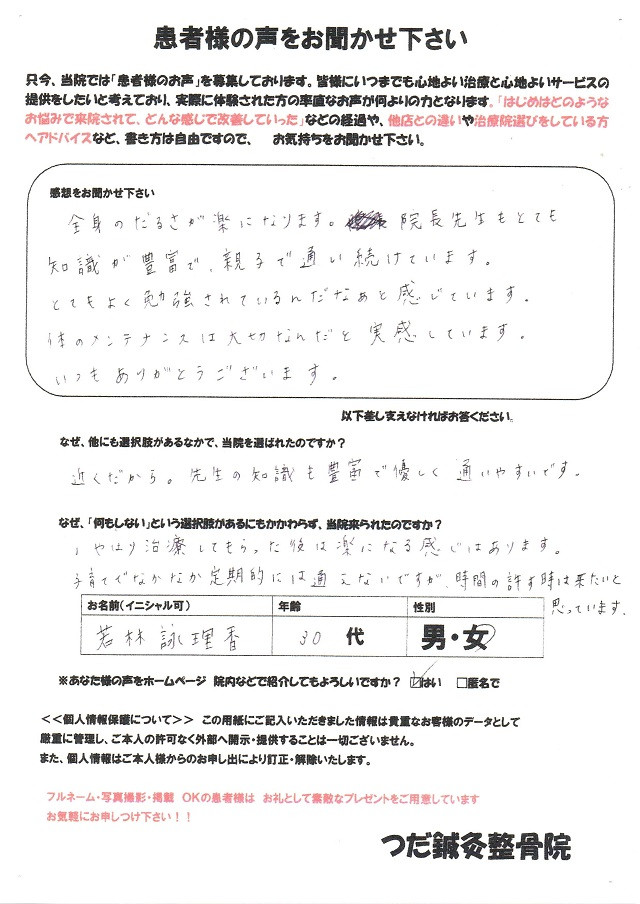 患者様の声をお聞かせ下さい
只今、当院では「患者様のお声」を募集しております。皆様にいつまでも心地よい治療と心地よいサービスの
提供をしたいと考えており、実際に体験された方の率直なお声が何よりの力となります。「はじめはどのような
お悩みで来院されて、どんな感じで改善していった」などの経過や、他店との違いや治療院選びをしている方
へアドバイスなど、書き方は自由ですので、　お気持ちをお聞かせ下さい。
感想をお聞かせ下さい
全身のだるさが楽になります。 院長先生もとても
知識が豊富で、親子で通い続けています。
とてもよく勉強されているんだなぁと感じています。
体のメンテナンスは大切なんだと実感しています。
いつもありがとうございます。
以下差し支えなければお答ください。
なぜ、他にも選択肢があるなかで、当院を選ばれたのですか？
近くだから。先生の知識も豊富で優しく通いやすいです。
なぜ、「何もしない」という選択肢があるにもかかわらず、当院来られたのですか？
やはり治療してもらった後は楽になる感じはあります。
子育てでなかなか定期的には通えないですが、時間の許す時は来たいと
思っています。
お名前（イニシャル可） 年齢 性別
若林 詠理香 30 代 男・女
※あなた様の声をホームページ 院内などで紹介してもよろしいですか？ ☑はい □匿名で
＜＜個人情報保護について＞＞ この用紙にご記入いただきました情報は貴重なお客様のデータとして
厳重に管理し、ご本人の許可なく外部へ開示・提供することは一切ございません。
また、個人情報はご本人様からのお申し出により訂正・解除いたします。
フルネーム・写真撮影・掲載 OKの患者様は お礼として素敵なプレゼントをご用意しています
お気軽にお申しつけ下さい！！
つだ鍼灸整骨院